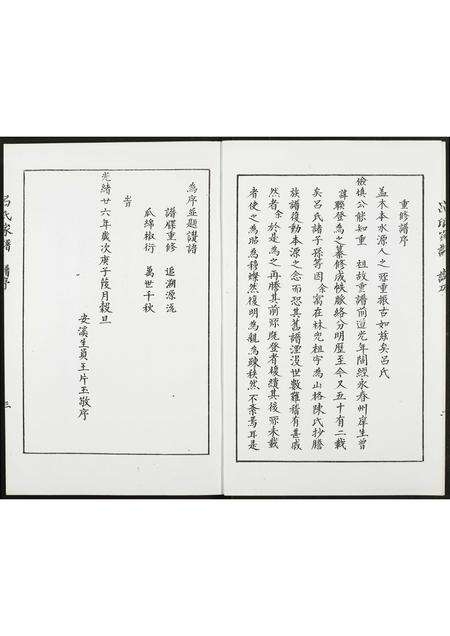 重修譜序
蓋木本水源人之所重振古如茲矣呂氏
儉慎公能知重 祖故重譜前道光年間經永春州庠生曾
諱聯登為之纂修成帙脈絡分明歷至今又五十有二載
矣呂氏諸子孫等因余寓在林兜祖宇為山格陳氏抄謄
族譜復動本源之念而恐其舊譜湮沒世數難稽有甚戚
然者余於是為之再謄其前所既登者復續其後所未載
者使之為昭為穆燦然復明為親為疎秩然不紊焉耳是
為序並題讚語
譜牒重修 追溯源流
瓜綿椒衍 萬世千秋
旹
光緒廿六年歲次庚子葭月穀旦
安溪生員王片玉敬序
呂氏家譜 譜序 三